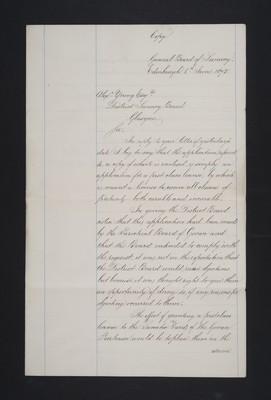 Copy
General Board of Lunacy,
Edinburgh 5th June 1878.
Alexr. Young Esqre.
District Lunacy Board
Glasgow.
Sir,
In reply to your letter of yesterday's
date I beg to say that the application
a copy of which is enclosed, is simply an
application for a first class licence, by which
is meant a licence to receive all classes of
patients both curable and incurable.
In giving the District Board
notice that this application had been made
by the Parochial Board of Govan and
that the Board intended to comply with
the request, it was not in the expectation that
the District Board would raise objections
but because it was thought right to give them
an opportunity of doing so if any reasons for
objecting occurred to them.
The effect of granting a first class
licence to the Lunatic Wards of the Govan
Poorhouse would be to place them on the